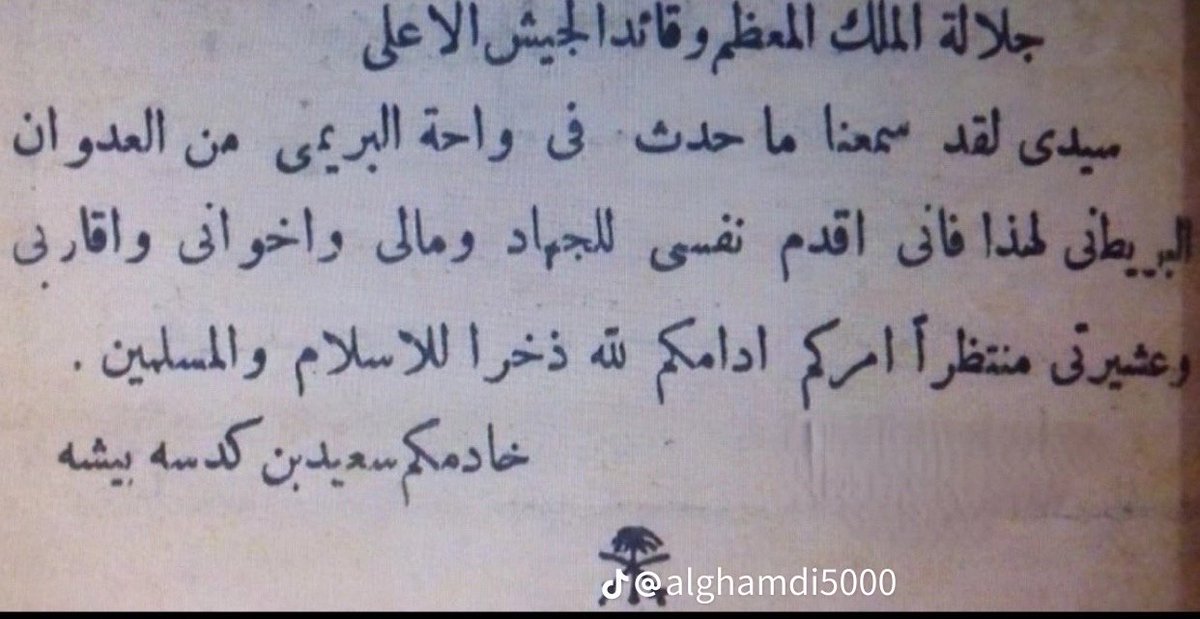 جلالة الملك المعظم وقائد الجيش الاعلى
سيدى لقد سمعنا ما حدث فى واحة البريمى من العدوان
البريطانى لهذا فانى اقدم نفسى للجهاد ومالى واخوانى واقاربى
وعشيرتى منتظراً امركم ادامكم لله ذخرا للاسلام والمسلمين .
خادمكم سعيد بن كدسه بيشه
@alghamdi5000